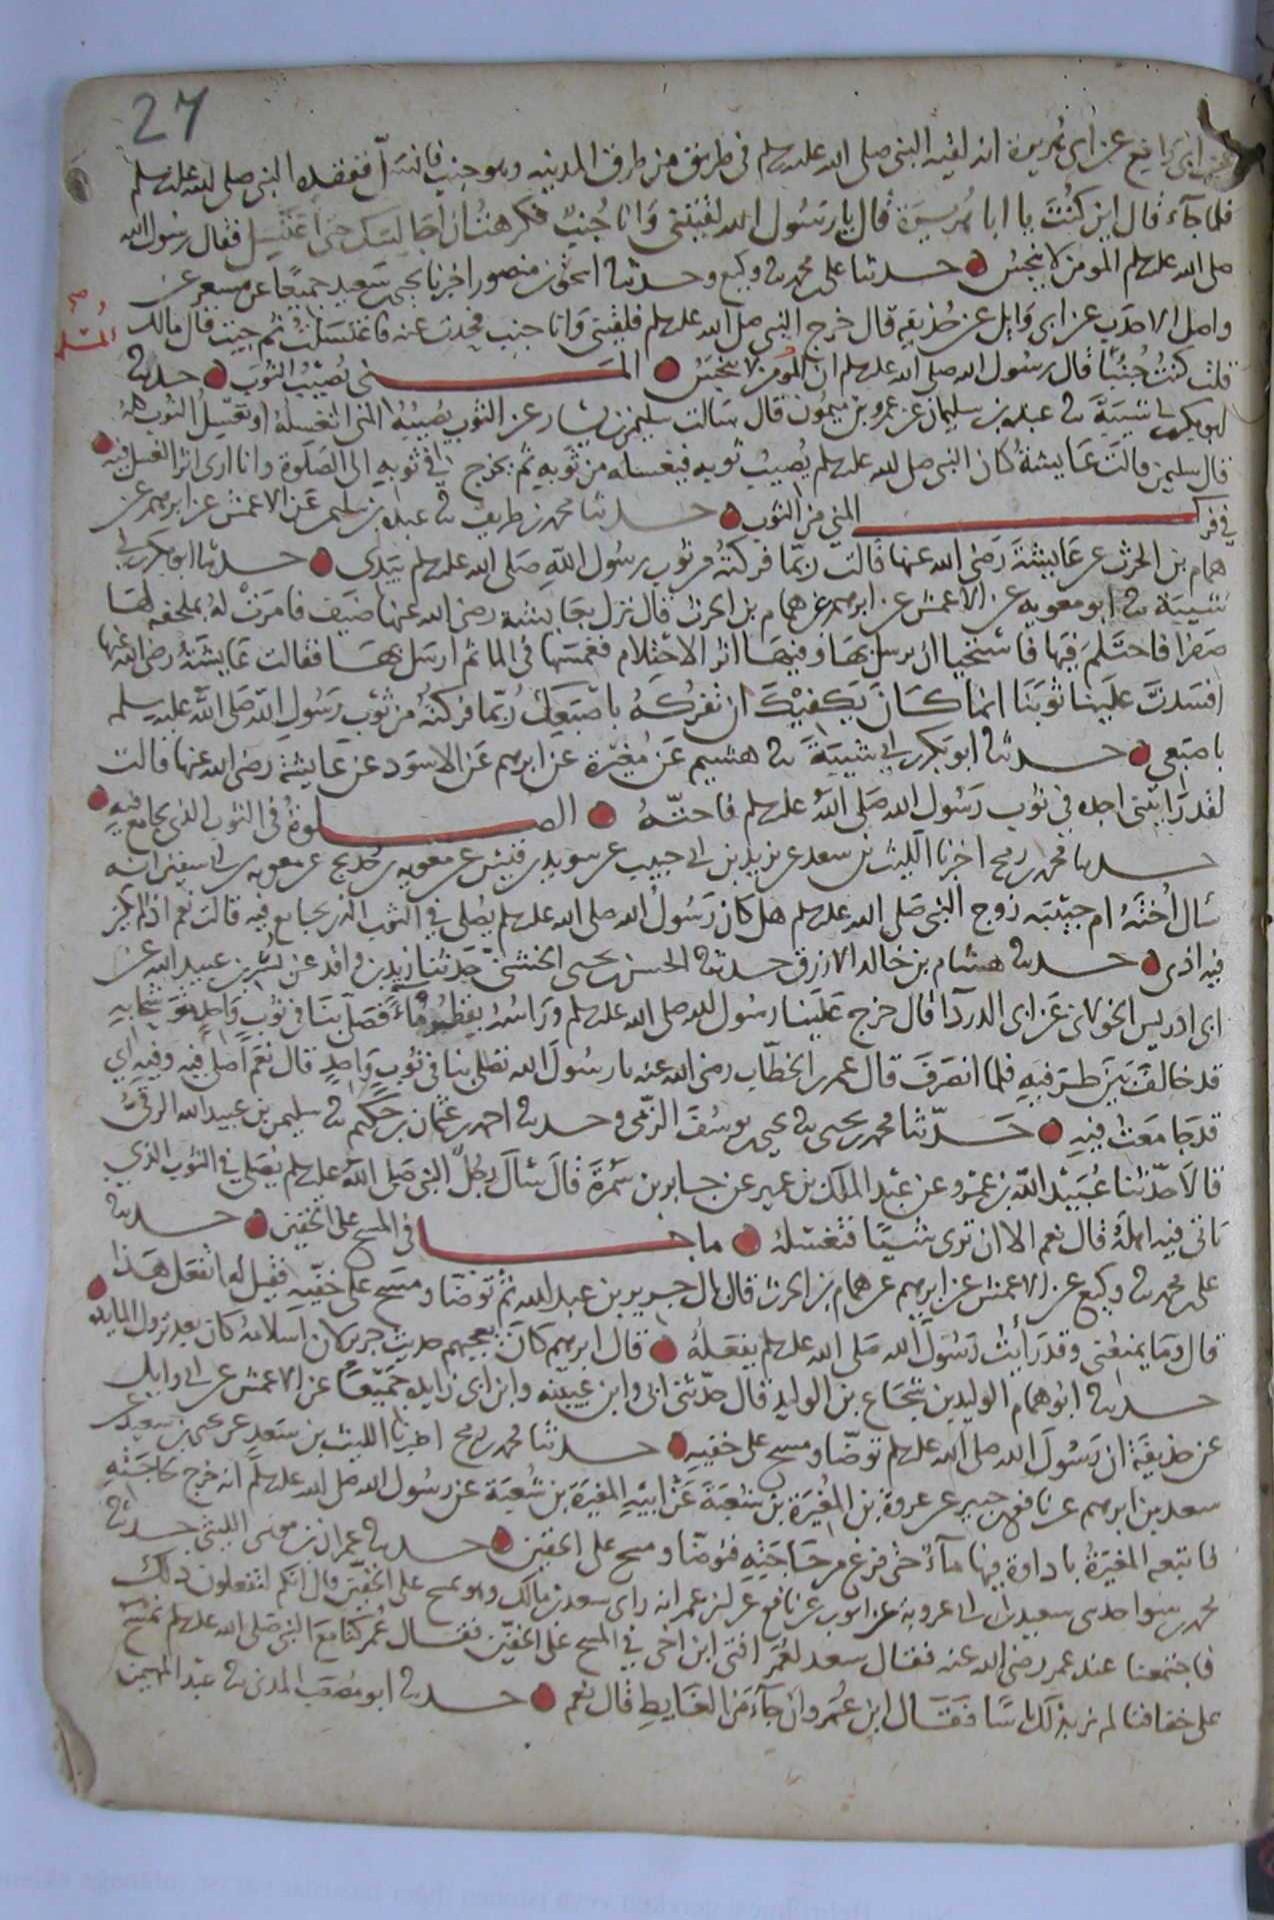 27
عن ابى رافع عن ابى هريرة انه لقيه النبى صلى الله عليه وسلم فى طريق من طرق المدينه وهو جنب فانسل ففقده النبى صلى الله عليه وسلم
فلما جآء قال اين كنت يا ابا هريرة قال يا رسول الله لقيتنى وانا جنب فكرهت ان اجالسك حتى اغتسل فقال رسول الله
صلى الله عليه وسلم المومن لا ينجس حدثنا على بن محمد ثنا وكيع وحدثنا اسحق بن منصور اخبرنا يحيى بن سعيد جميعا عن مسعر عن
واصل الاحدب عن ابى وايل عن حذيفه قال خرج النبى صلى الله عليه وسلم فلقينى وانا جنب فحدت عنه فاغتسلت ثم جيت فقال مالك
المسلم صح
قلت كنت جنبا قال رسول الله صلى الله عليه وسلم ان المومن لا ينجس المنى يصيب الثوب حدثنا
ابو بكر بن ابى شيبة ثنا عبدة بن سليمان عن عمرو بن ميمون قال سالت سليمن بن يسار عن الثوب يصيبه المنى انغسله او نغسل الثوب كله
قال سليمن قالت عايشة كان النبى صلى الله عليه وسلم يصيب ثوبه فيغسله من ثوبه ثم يخرج فى ثوبه الى الصلوة وانا ارى اثر الغسل فيه
فى فرك المنى من الثوب حدثنا محمد بن طريف ثنا عبدة بن سليمن عن الاعمش عن ابرهيم عن
همام بن الحرث عن عايشة رضى الله عنها قالت ربما فركته من ثوب رسول الله صلى الله عليه وسلم بيدى حدثنا ابو بكر بن ابى
شيبة ثنا ابو معويه عن الاعمش عن ابرهيم عن همام بن الحرث قال نزل بعايشة رضى الله عنها ضيف فامرت له بملحفه لها
صفرا فاحتلم فيها فاستحيا ان يرسل بها وفيها اثر الاحتلام فغمسها فى الما ثم ارسل بها فقالت عايشة رضى الله عنها
افسدت علينا ثوبنا انما كان يكفيك ان تفركه باصبعك ربما فركته من ثوب رسول الله صلى الله عليه وسلم
باصبعى حدثنا ابو بكر بن ابى شيبة ثنا هشيم عن مغيرة عن ابرهيم عن الاسود عن عايشة رضى الله عنها قالت
لقد رايتنى اجده فى ثوب رسول الله صلى الله عليه وسلم فاحته الصلوة فى الثوب الذى يجامع فيه
حدثنا محمد بن رمح اخبرنا الليث بن سعد عن يزيد بن ابى حبيب عن سويد بن قيس عن معويه بن حديج عن معويه بن ابى سفين انه
سال اخته ام حبيبه زوج النبى صلى الله عليه وسلم هل كان رسول الله صلى الله عليه وسلم يصلى فى الثوب الذى يجامع فيه قالت نعم اذا لم يكن
فيه اذى حدثنا هشام بن خالد الازرق حدثنا الحسن بن يحيى الخشنى حدثنا زيد بن واقد عن بسر بن عبيد الله عن
ابى ادريس الخولانى عن ابى الدردآ قال خرج علينا رسول الله صلى الله عليه وسلم وراسه يقطر مآء فصلى بنا فى ثوب واحد متوشحا به
قد خالف بين طرفيه فلما انصرف قال عمر بن الخطاب رضى الله عنه يا رسول الله تصلى بنا فى ثوب واحد قال نعم اصلى فيه وفيه اى
قد جامعت فيه حدثنا محمد بن يحيى ثنا يحيى بن يوسف الزمى وحدثنا احمد بن عثمان بن حكيم ثنا سليمن بن عبيد الله الرقى
قالا حدثنا عبيد الله بن عمرو عن عبد الملك بن عمير عن جابر بن سمرة قال سال رجل النبى صلى الله عليه وسلم يصلى فى الثوب الذى
ياتى فيه اهله قال نعم الا ان ترى شيا فتغسله ما جا فى المسح على الخفين حدثنا
على بن محمد ثنا وكيع عن الاعمش عن ابرهيم عن همام بن الحرث قال بال جرير بن عبد الله ثم توضا ومسح على خفيه فقيل له اتفعل هذا
قال وما يمنعنى وقد رايت رسول الله صلى الله عليه وسلم يفعله قال ابرهيم كان يعجبهم حديث جرير لان اسلامه كان بعد نزول المايده
حدثنا ابو همام الوليد بن شجاع بن الوليد قال حدثنى ابى وابن عيينه وابن ابى زايده جميعا عن الاعمش عن ابى وايل
عن حذيفة ان رسول الله صلى الله عليه وسلم توضا ومسح على خفيه حدثنا محمد بن رمح اخبرنا الليث بن سعد عن يحيى بن سعيد عن
سعد بن ابرهيم عن نافع بن جبير عن عروة بن المغيرة بن شعبة عن ابيه المغيرة بن شعبة عن رسول الله صلى الله عليه وسلم انه خرج لحاجته
فاتبعه المغيرة باداوة فيها مآء حتى فرغ من حاجته فتوضا ومسح على الخفين حدثنا عمران بن موسى الليثى حدثنا
محمد بن سوا حدثنا سعيد بن ابى عروبة عن ايوب عن نافع عن ابن عمر انه راى سعد بن مالك وهو يمسح على الخفين قال انكم لتفعلون ذلك
فاجتمعنا عند عمر رضى الله عنه فقال سعد لعمر افتى ابن اخى فى المسح على الخفين فقال عمر كنا مع النبى صلى الله عليه وسلم نمسح
على خفافنا لم نر بذلك باسا فقال ابن عمر وان جآء من الغايط قال نعم حدثنا ابو مصعب المدنى ثنا عبد المهيمن